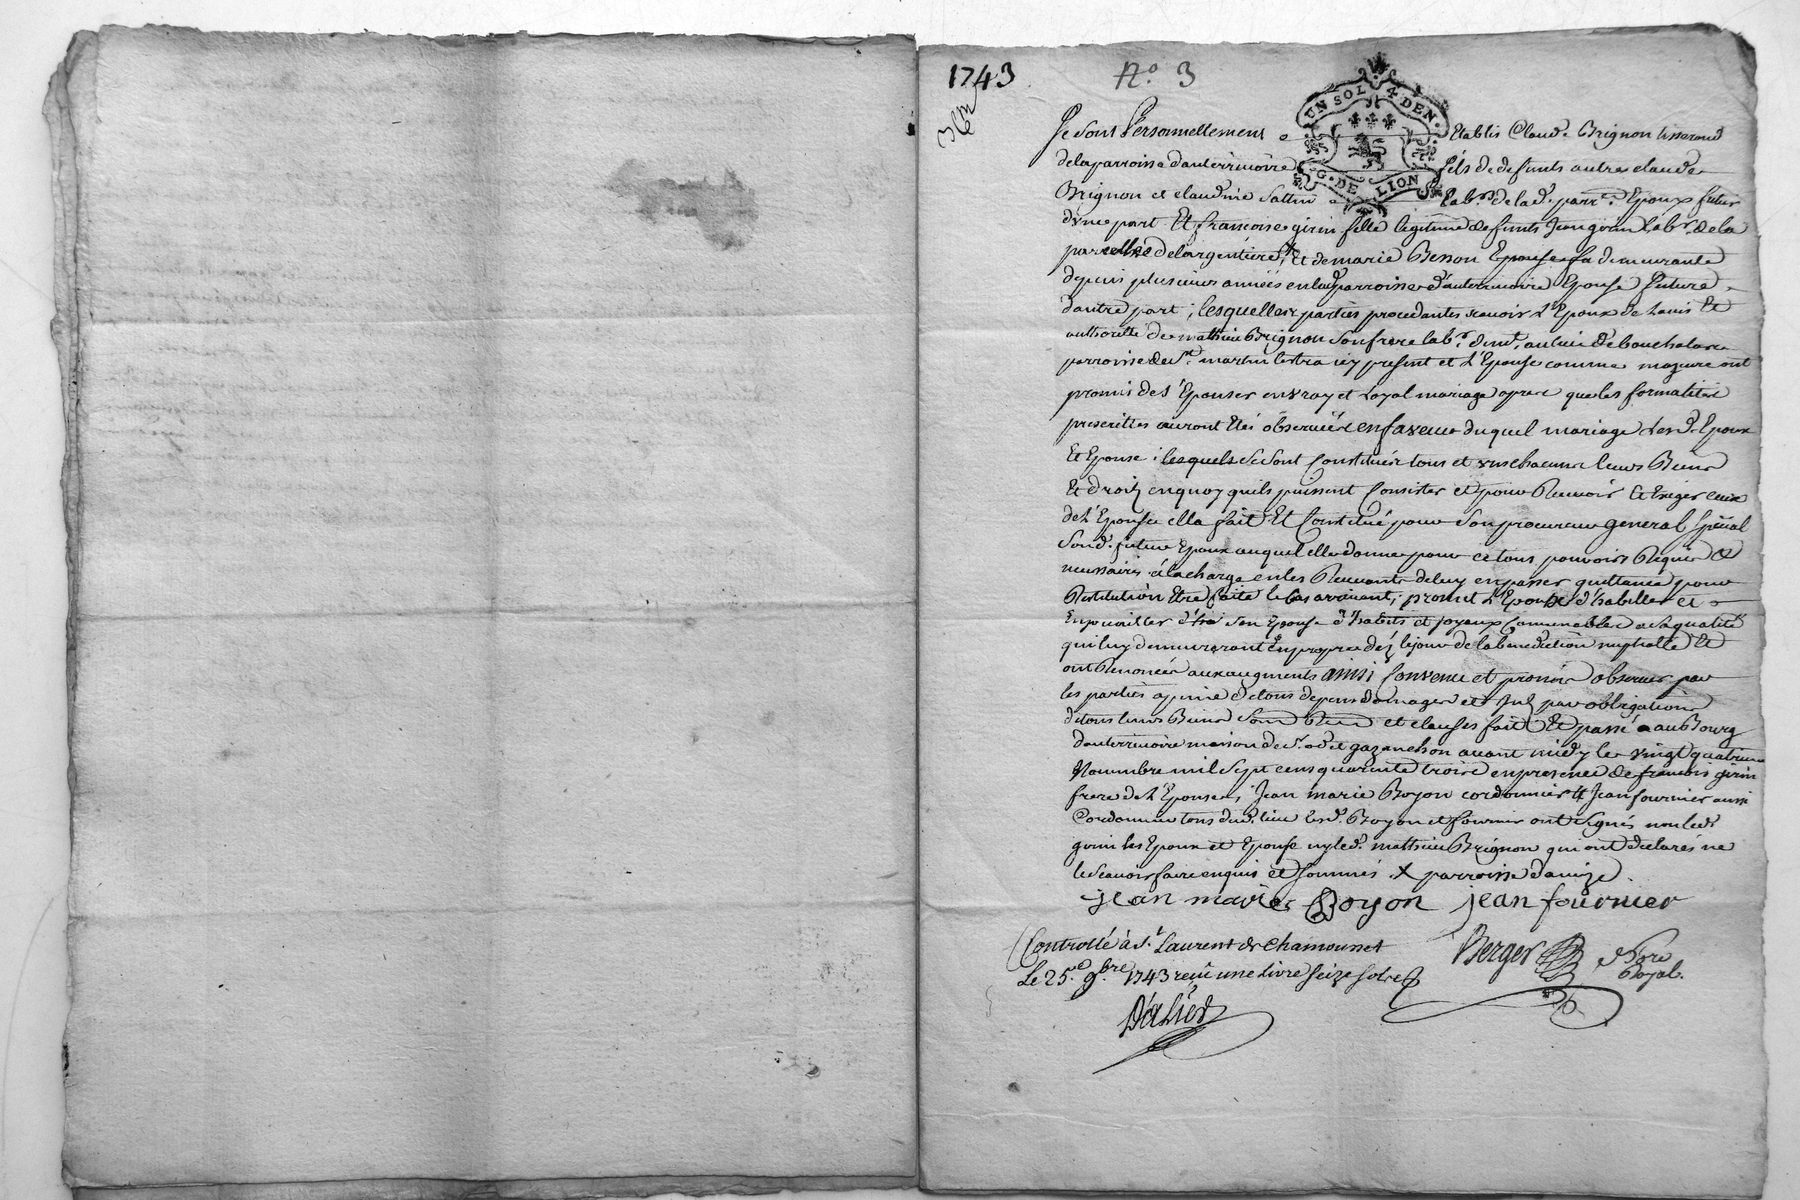 1743
N.o 3
UN SOL 4 DEN.
G. DE LION
Se sont Personnellement Etablis Claude Brignon tisserand
de la parroisse d'auterrivoire fils de defunts autre claude
Brignon et claudine lab.r de lad. parr.e Epoux futur
d'une part Et francoise girin fille legitime de defunts Jean girin lab.r de la
parroisse de largentiere X Et de marie Besson Epouse sa demeurante
depuis plusieurs années en lad parroisse d'auterrivoire Epouse future
d'autre part, lesquelles parties procedantes scavoir L'Epoux de Lavis Et
authorité de mathieu Brignon son frere lab.r dem.t au lieu de
parroisse de S.t martin lestra icy present et L'Epouse comme majeure ont
promis de s'Epouser en vray et Loyal mariage apres que les formalités
prescrittes auront etés observées en faveur duquel mariage lesd. Epoux
Et Epouse lesquels se sont Constitués tous et uns chacuns leurs Biens
Et droits en quoy quils puissent Consister et pour Recevoir Et Exiger ceux
de L'Epouse ella fait Et Constitué pour son procureur general special
Sond. futur Epoux auquel elle donne pour ce tous pouvoirs Requis et
necessaires a la charge en les Recevants de luy en passer quittance pour
Restitution Etre faite le Cas arrivant, promet L'Epoux d'habiller et
Enjoailler son Epouse d'habits et joyaux Convenables a sa qualité
qui luy demeureront En propre dez le jour de la benediction nuptialle Et
ont Renoncés aux augments ainsi Convenu et promis observer par
les parties a peine de tous depens domages et par obligations
de tous leurs Biens et clauses fait Et passé au Bourg
dauterrivoire maison de S.r gazanchon avant midy le vingt quatrieme
Novembre mil sept cens quarente trois en presence de francois girin
frere de L'Epouse, Jean marie Boyon cordonnier Et Jean fournier aussi
Cordonnier tous dud. lieu lesd. Boyon et fournier ont signés non led.
girin les Epoux et Epouse ny led. mathieu Brignon qui ont declarés ne
le scavoir faire enquis et sommés. X parroisse daveize
jean marie Boyon jean fournier
Controllé à S.t Laurent de Chamousset
Le 25.e 9.bre 1743 reçu une Livre seize sols
Berger No.re Royal.